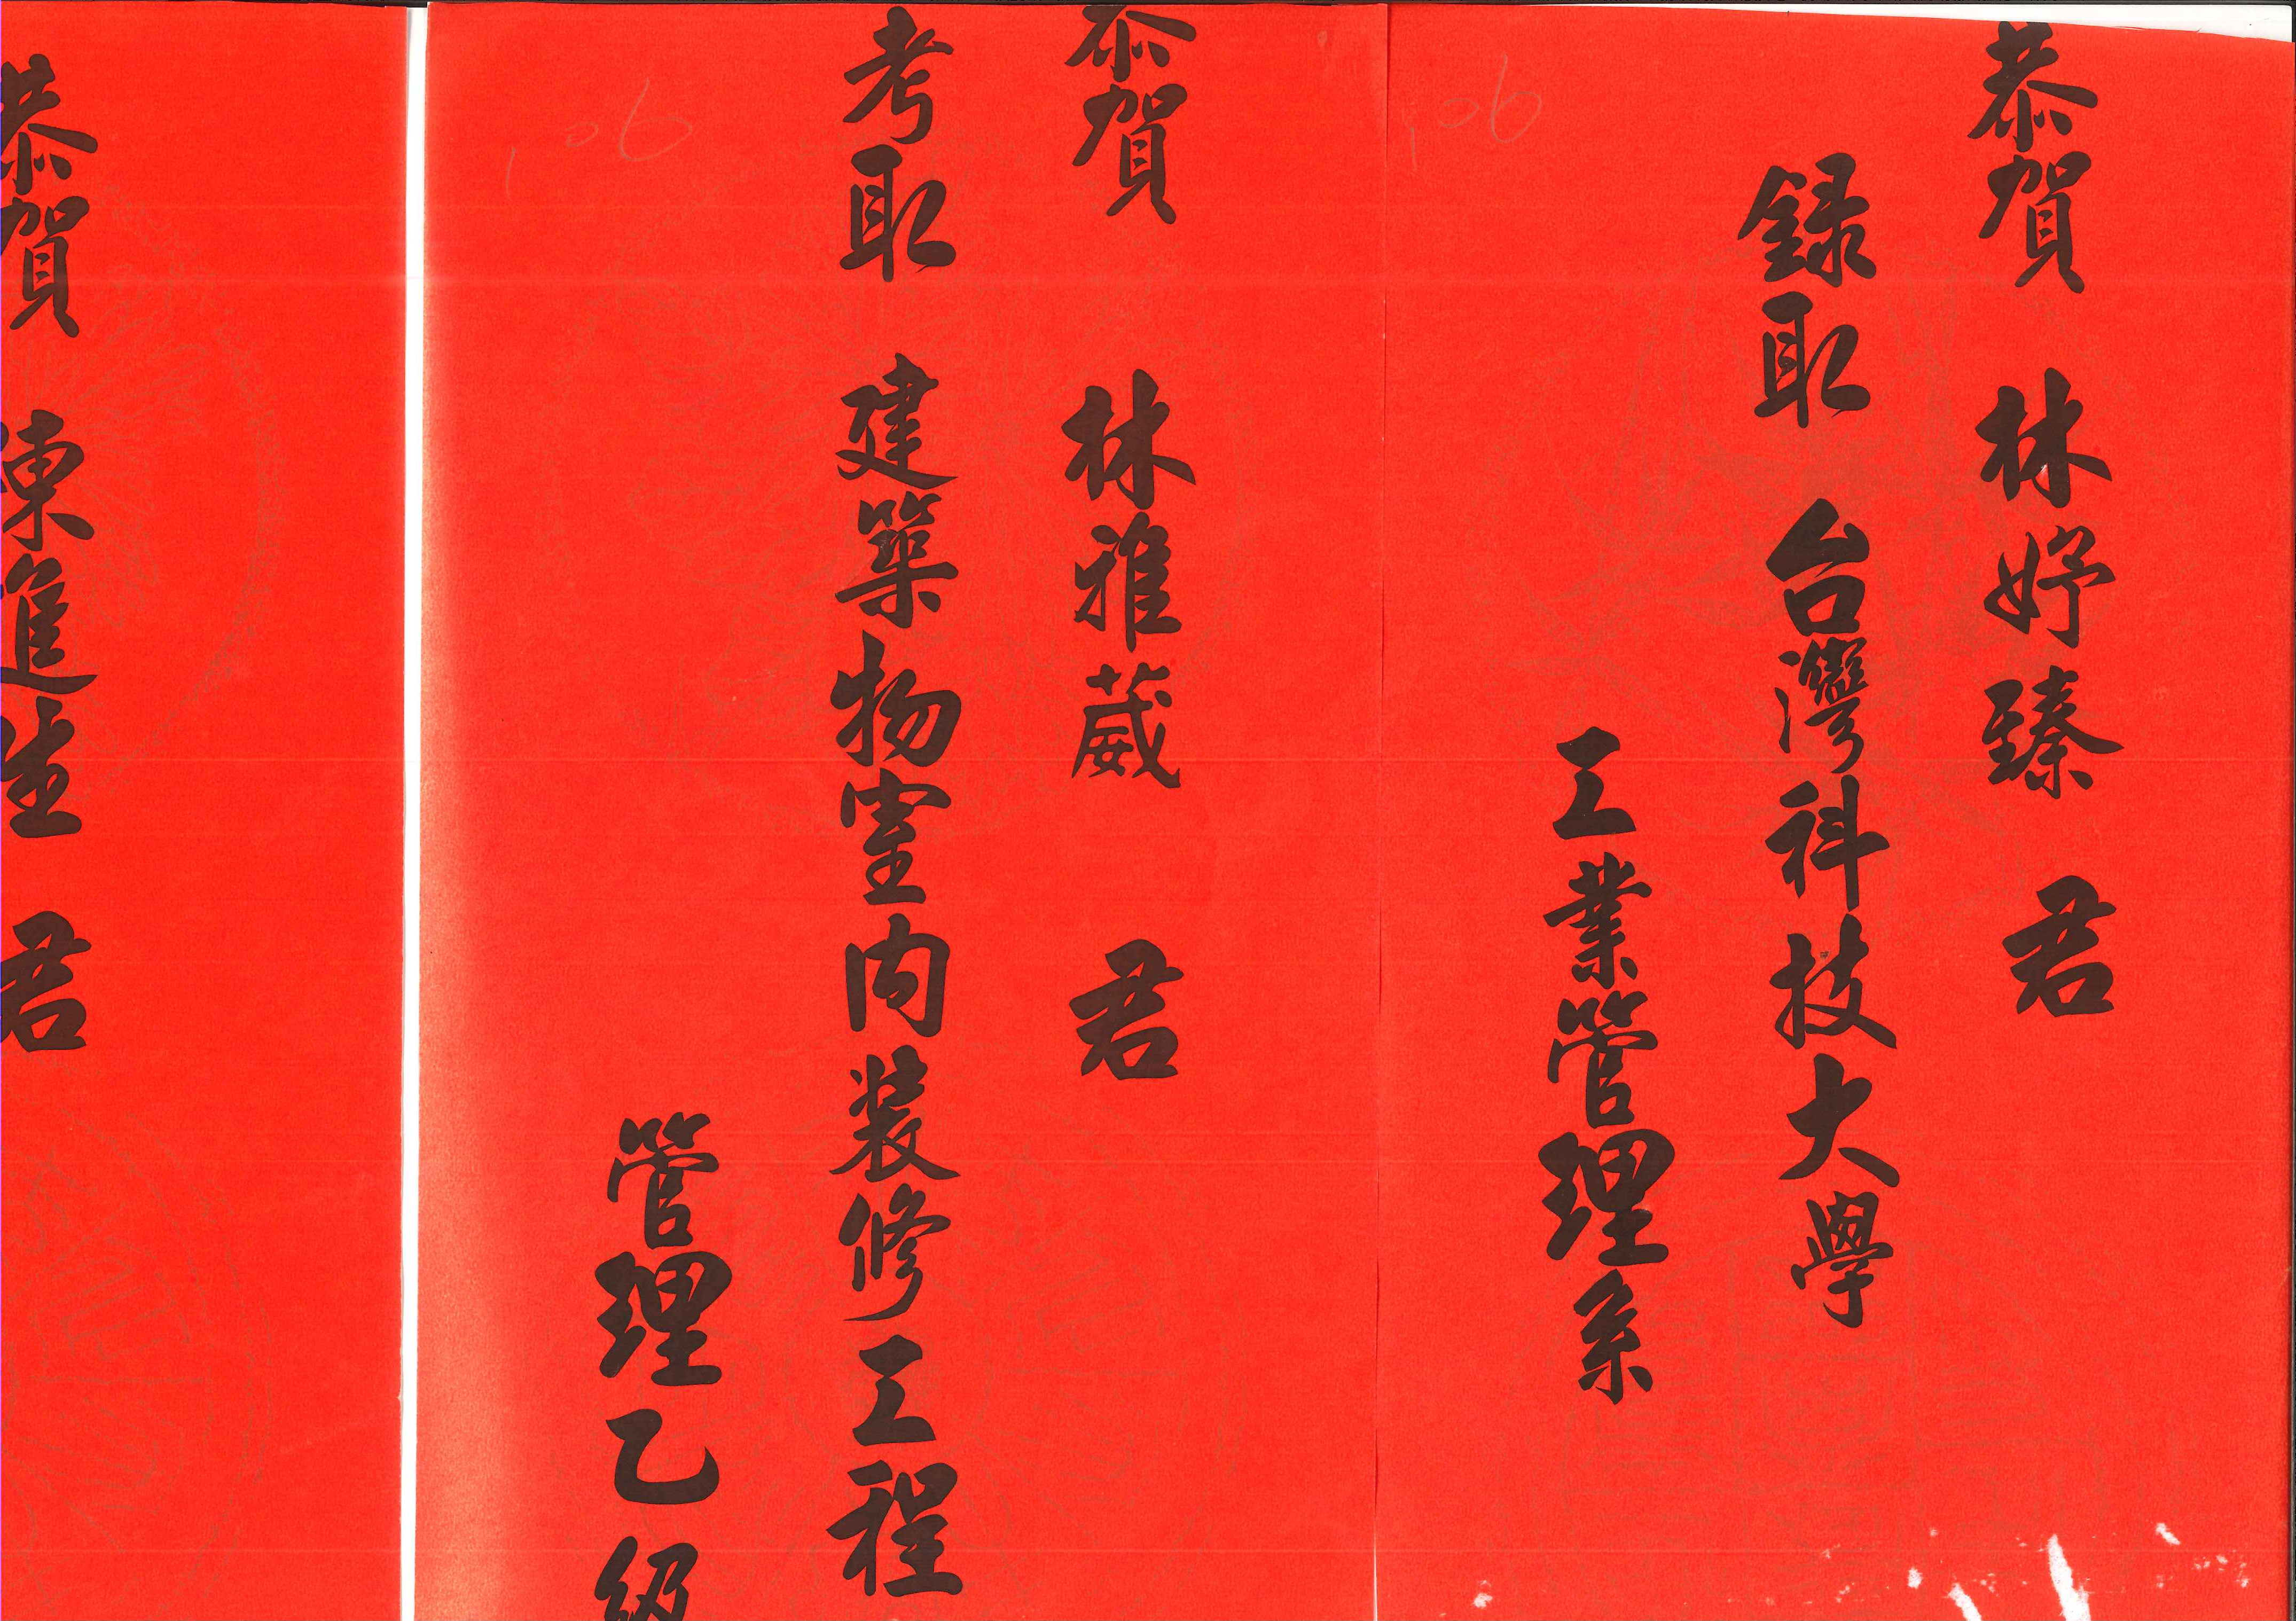 恭賀 林妤臻 君
錄取 台灣科技大學
工業管理系
106
恭賀 林雅葳 君
考取 建築物室內裝修工程
管理乙級
106
恭賀 陳進生 君